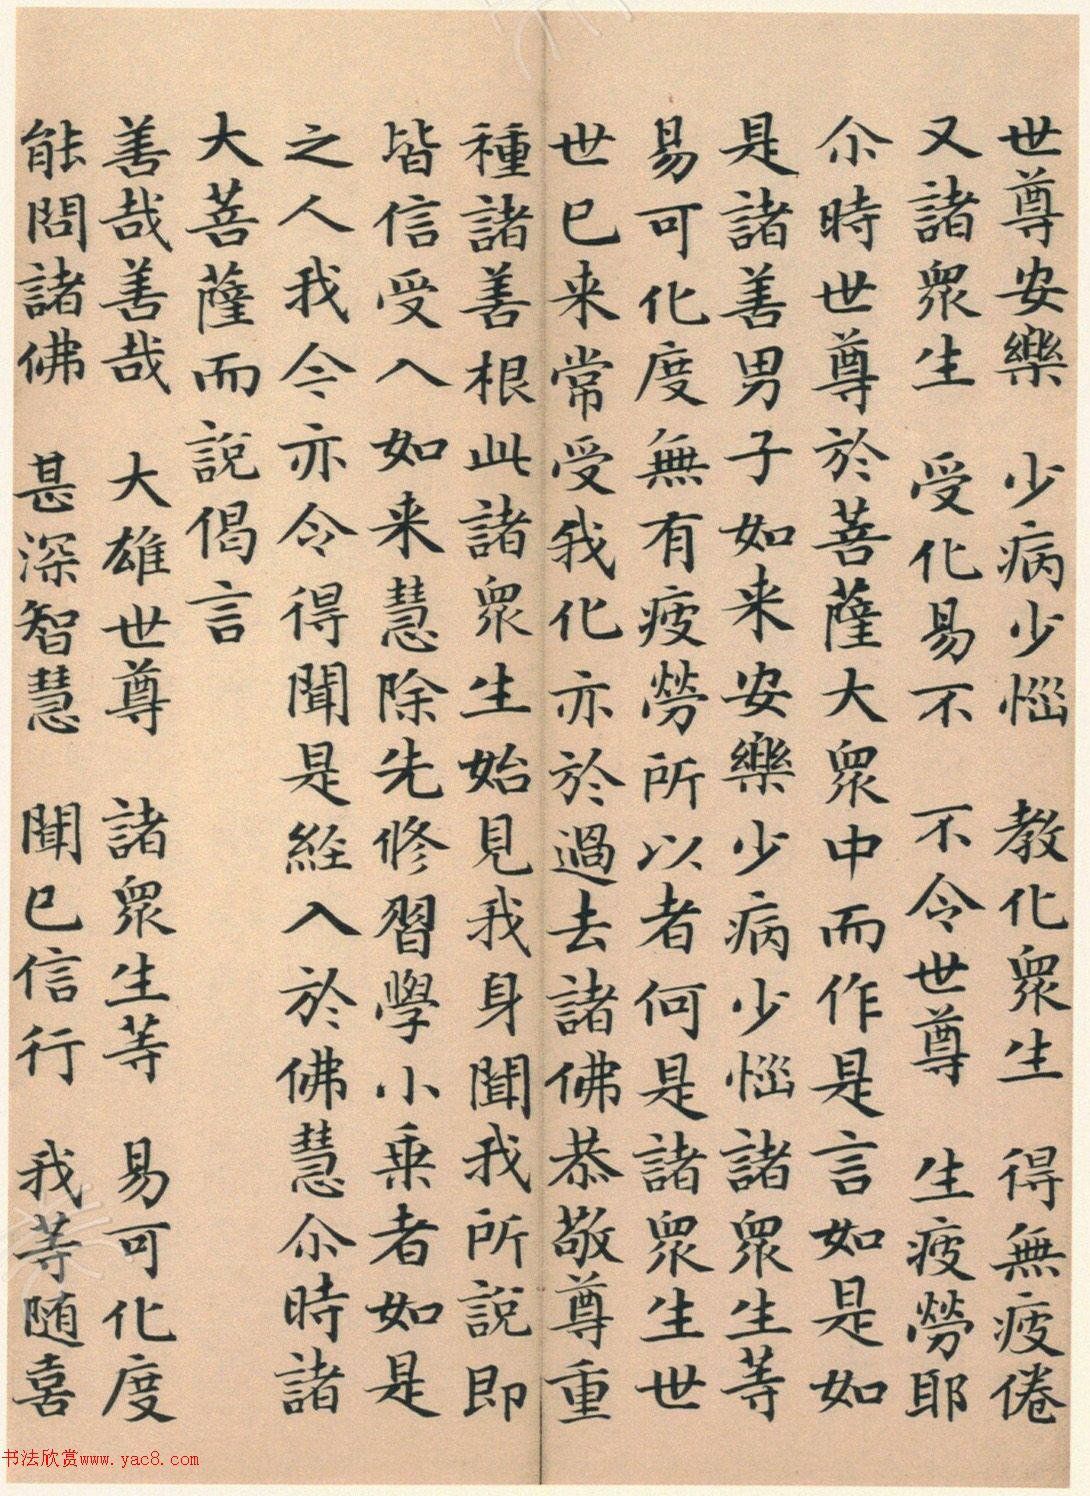 世尊安樂　少病少惱　教化衆生　得無疲倦
又諸衆生　受化易不　不令世尊　生疲勞耶
尒時世尊於菩薩大衆中而作是言如是如
是諸善男子如来安樂少病少惱諸衆生等
易可化度無有疲勞所以者何是諸衆生世
世已来常受我化亦於過去諸佛恭敬尊重
種諸善根此諸衆生始見我身聞我所說即
皆信受入如来慧除先修習學小乘者如是
之人我今亦令得聞是経入於佛慧尒時諸
大菩薩而說偈言
善哉善哉　大雄世尊　諸衆生等　易可化度
能問諸佛　甚深智慧　聞已信行　我等随喜
书法欣赏www.yac8.com